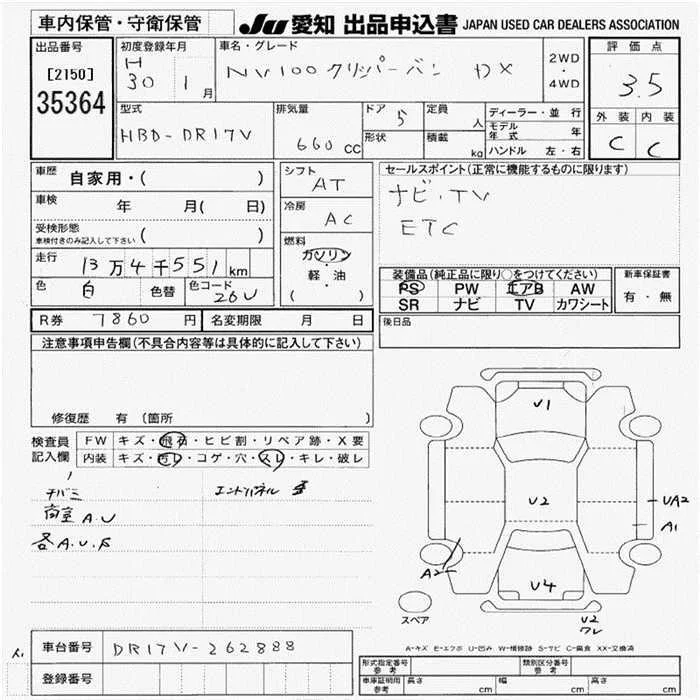 車内保管・守衛保管
JU 愛知 出品申込書 JAPAN USED CAR DEALERS ASSOCIATION
出品番号
[2150]
35364
初度登録年月
H 30 1月
車名・グレード
NV100クリッパーバン DX
2WD・4WD
評価点
3.5
外装 内装
C C
型式
HBD-DR17V
排気量
660 CC
ドア 5
形状
定員 人
積載 kg
ディーラー・並行
モデル年式 年
ハンドル 左・右
車歴 自家用・( )
車検 年 月( 日)
受検形態
車検付きのみ記入して下さい ( )
走行 13万4千551km
色 白 色替 色コード 26U
シフト AT
冷房 AC
燃料
ガソリン
・
軽・油
( )
セールスポイント(正常に機能するものに限ります)
ナビ・TV
ETC
装備品(純正品に限り○をつけてください)
PS PW エアB AW
SR ナビ TV カワシート
新車保証書
有・無
R券 7860円 名変期限 月 日
後日品
注意事項申告欄(不具合内容等は具体的に記入して下さい)
修復歴 有(箇所 )
検査員記入欄
FW キズ・飛石・ヒビ割・リペア跡・X要
内装 キズ・汚レ・コゲ・穴・スレ・キレ・破レ
チバミ
エンドパネル
荷室 A.U
各A.U.S
U1
U2
UA2
A1
A2
U4
U2
ワレ
スペア
A-キズ E-エクボ U-凹み W-補修跡 S-サビ C-腐食 XX-交換済
車台番号 DR17V-262888
登録番号
形式指定番号
参考
類別区分番号
参考
車庫証明用
参考
長さ cm 幅 cm 高さ cm